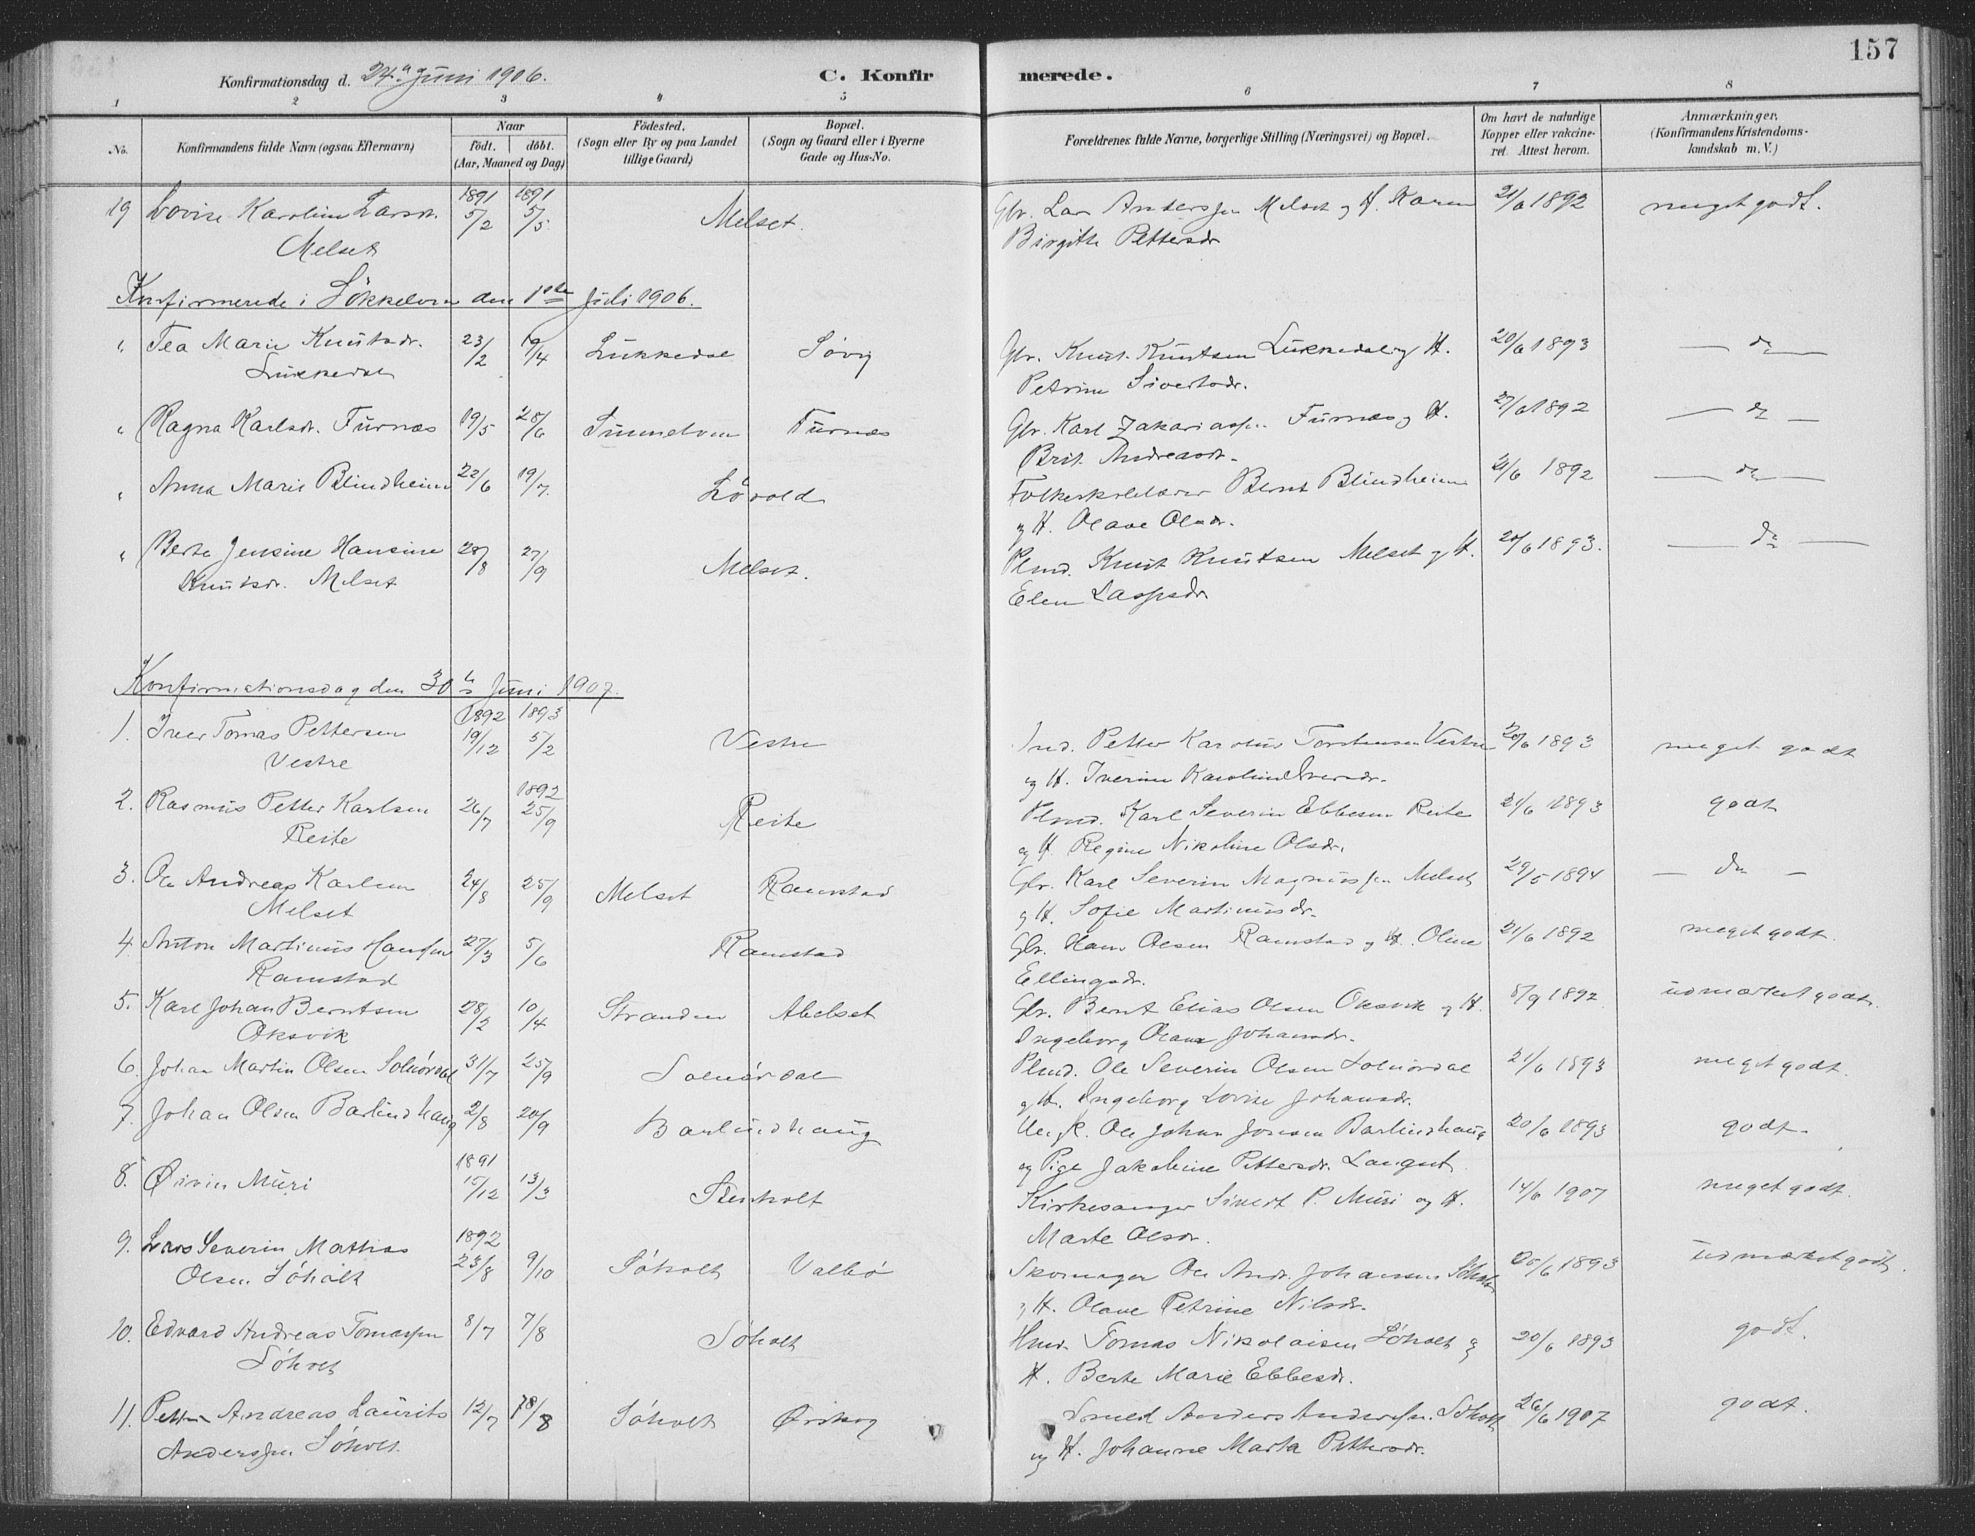 157
Konfirmationsdag d. 24de Juni 1906.
C. Konfirmerede.
1 2 3 4 5 6 7 8
No.
Konfirmandens fulde Navn (ogsaa Efternavn)
Naar
født. døbt.
(Aar, Maaned og Dag)
Fødested.
(Sogn eller By og paa Landet
tillige Gaard.)
Bopæl.
(Sogn og Gaard eller i Byerne
Gade og Hus-No.
Forældrenes fulde Navne, borgerlige Stilling (Næringsvei) og Bopæl.
Om havt de naturlige
Kopper eller vakcine-
ret. Attest herom.
Anmærkninger.
(Konfirmandens Kristendoms-
kundskab m. V.)
1891 1891
19 Lovise Karoline Larsdr. 5/2 5/5 Melset. Gbr. Lars Anderssen Melset og H. Karen 21/6 1892 meget godt.
Melset Birgitte Pettersdr
Konfirmerede i Sökkelven den 1ste Juli 1906.
" Tea Marie Knutsdr. 23/2 19/4 Lukkedal Søvig Gbr. Knut Knutsen Lukkedal og H. 20/6 1893 — do —
Lukkedal Petrine Sivertsdr.
" Ragna Karlsdr. Furnæs 19/5 28/6 Sunnelven Furnæs Gbr. Karl Zakariassen Furnæs og H. 27/6 1892 — do —
Brit. Andreasdr.
" Anna Marie Blindheim 22/6 19/7. Løvold Folkeskolelærer Bernt Blindheim 21/6 1892 — do —
og H. Olave Olsdr.
" Berte Jensine Hansine 28/8 27/9 Melset. Plmd. Knut Knutsen Melset og H. 20/6 1893. — do —
Knutsdr. Melset Elen Lassesdr
Konfirmationsdag den 30te Juni 1907.
1892 1893
1. Iver Tomas Pettersen 19/12 5/2 Vestre Ind. Petter Karolus Torstensen Vestre 20/6 1893 meget godt
Vestre og H. Iverine Karoline Iversdr.
1892
2. Rasmus Petter Karlsen 26/7 25/9 Reite Plmd. Karl Severin Ebbesen Reite 21/6 1893 godt
Reite og H. Regine Nikoline Olsdr.
3. Ole Andreas Karlsen 24/8 25/9 Melset Ramstad Gbr. Karl Severin Magnussen Melset 29/5 1894 — do —
Melset og H. Sofie Martinusdr.
4. Anton Martinus Hanssen 27/3 5/6 Ramstad Gbr. Hans Olsen Ramstad og H. Oline 21/6 1892 meget godt.
Ramstad Ellingsdr.
5. Karl Johan Berntsen 28/2 10/4 Stranden Abelset Gbr. Bernt Elias Olsen Oksvik og H. 8/9 1892 udmærket godt.
Oksvik Ingeborg Olava Johansdr.
6. Johan Martin Olsen Solnørdal 31/7 25/9 Solnørdal Plmd. Ole Severin Olsen Solnørdal 21/6 1893 meget godt.
og H. Ingeborg Lovise Johansdr.
7. Johan Olsen Barlindhaug 2/8 20/9 Barlindhaug Ungk. Ole Johan Jonsen Barlindhaug 20/6 1893 godt.
og Pige Jakobine Pettersdr. Langset
1891
8. Øivin Muri 15/12 13/3 Stenholt Kirkesanger Sivert P. Muri og H. 14/6 1907 meget godt.
Marte Olsdr.
1892
9. Lars Severin Mathias 23/8 9/10 Søholt Valbø Skomager Ole Andr. Johansen Søholt 20/6 1893 udmærket godt.
Olsen Søholt og H. Olave Petrine Nilsdr.
10. Edvard Andreas Tomassen 8/7 7/8 Søholt Hmd. Tomas Nikolaisen Søholt og 20/6 1893 godt.
Søholt H. Berte Marie Ebbesdr.
11. Petter Andreas Laurits 12/7 18/8 Søholt Ørskog Smed Anders Anderssen. Søholt 26/6 1907 godt.
Anderssen Søholt. og H. Johanne Marta Pettersdr.